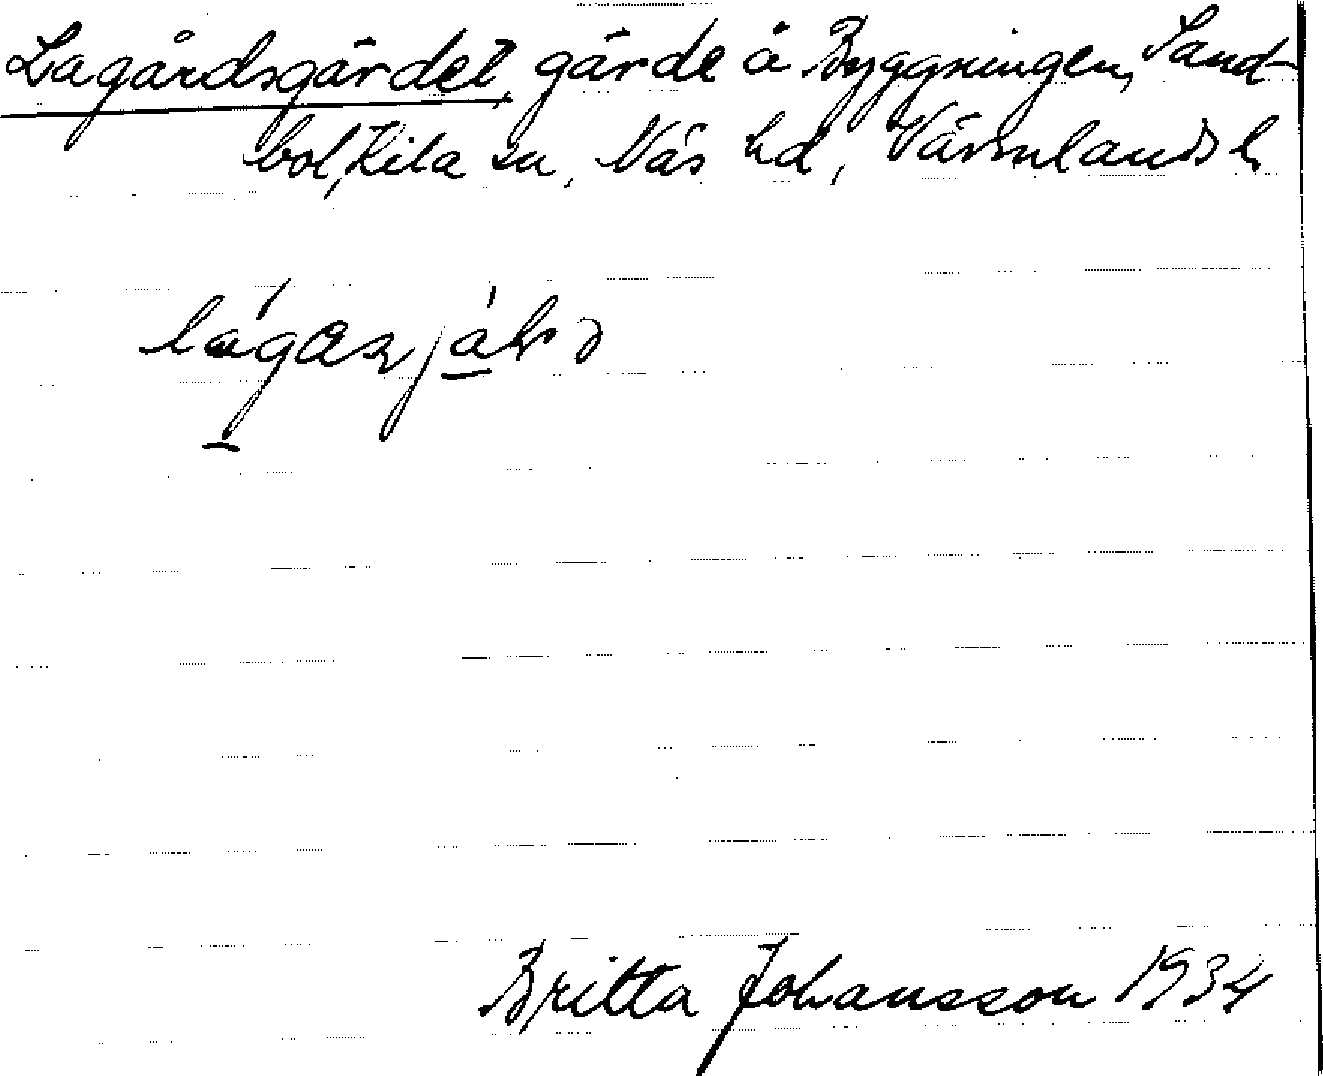 Lagårdsgärdet, gärde å Byggningen, Sand-
bol, Kila sn, Näs hd, Värmlands l.
Britta Johansson 1934